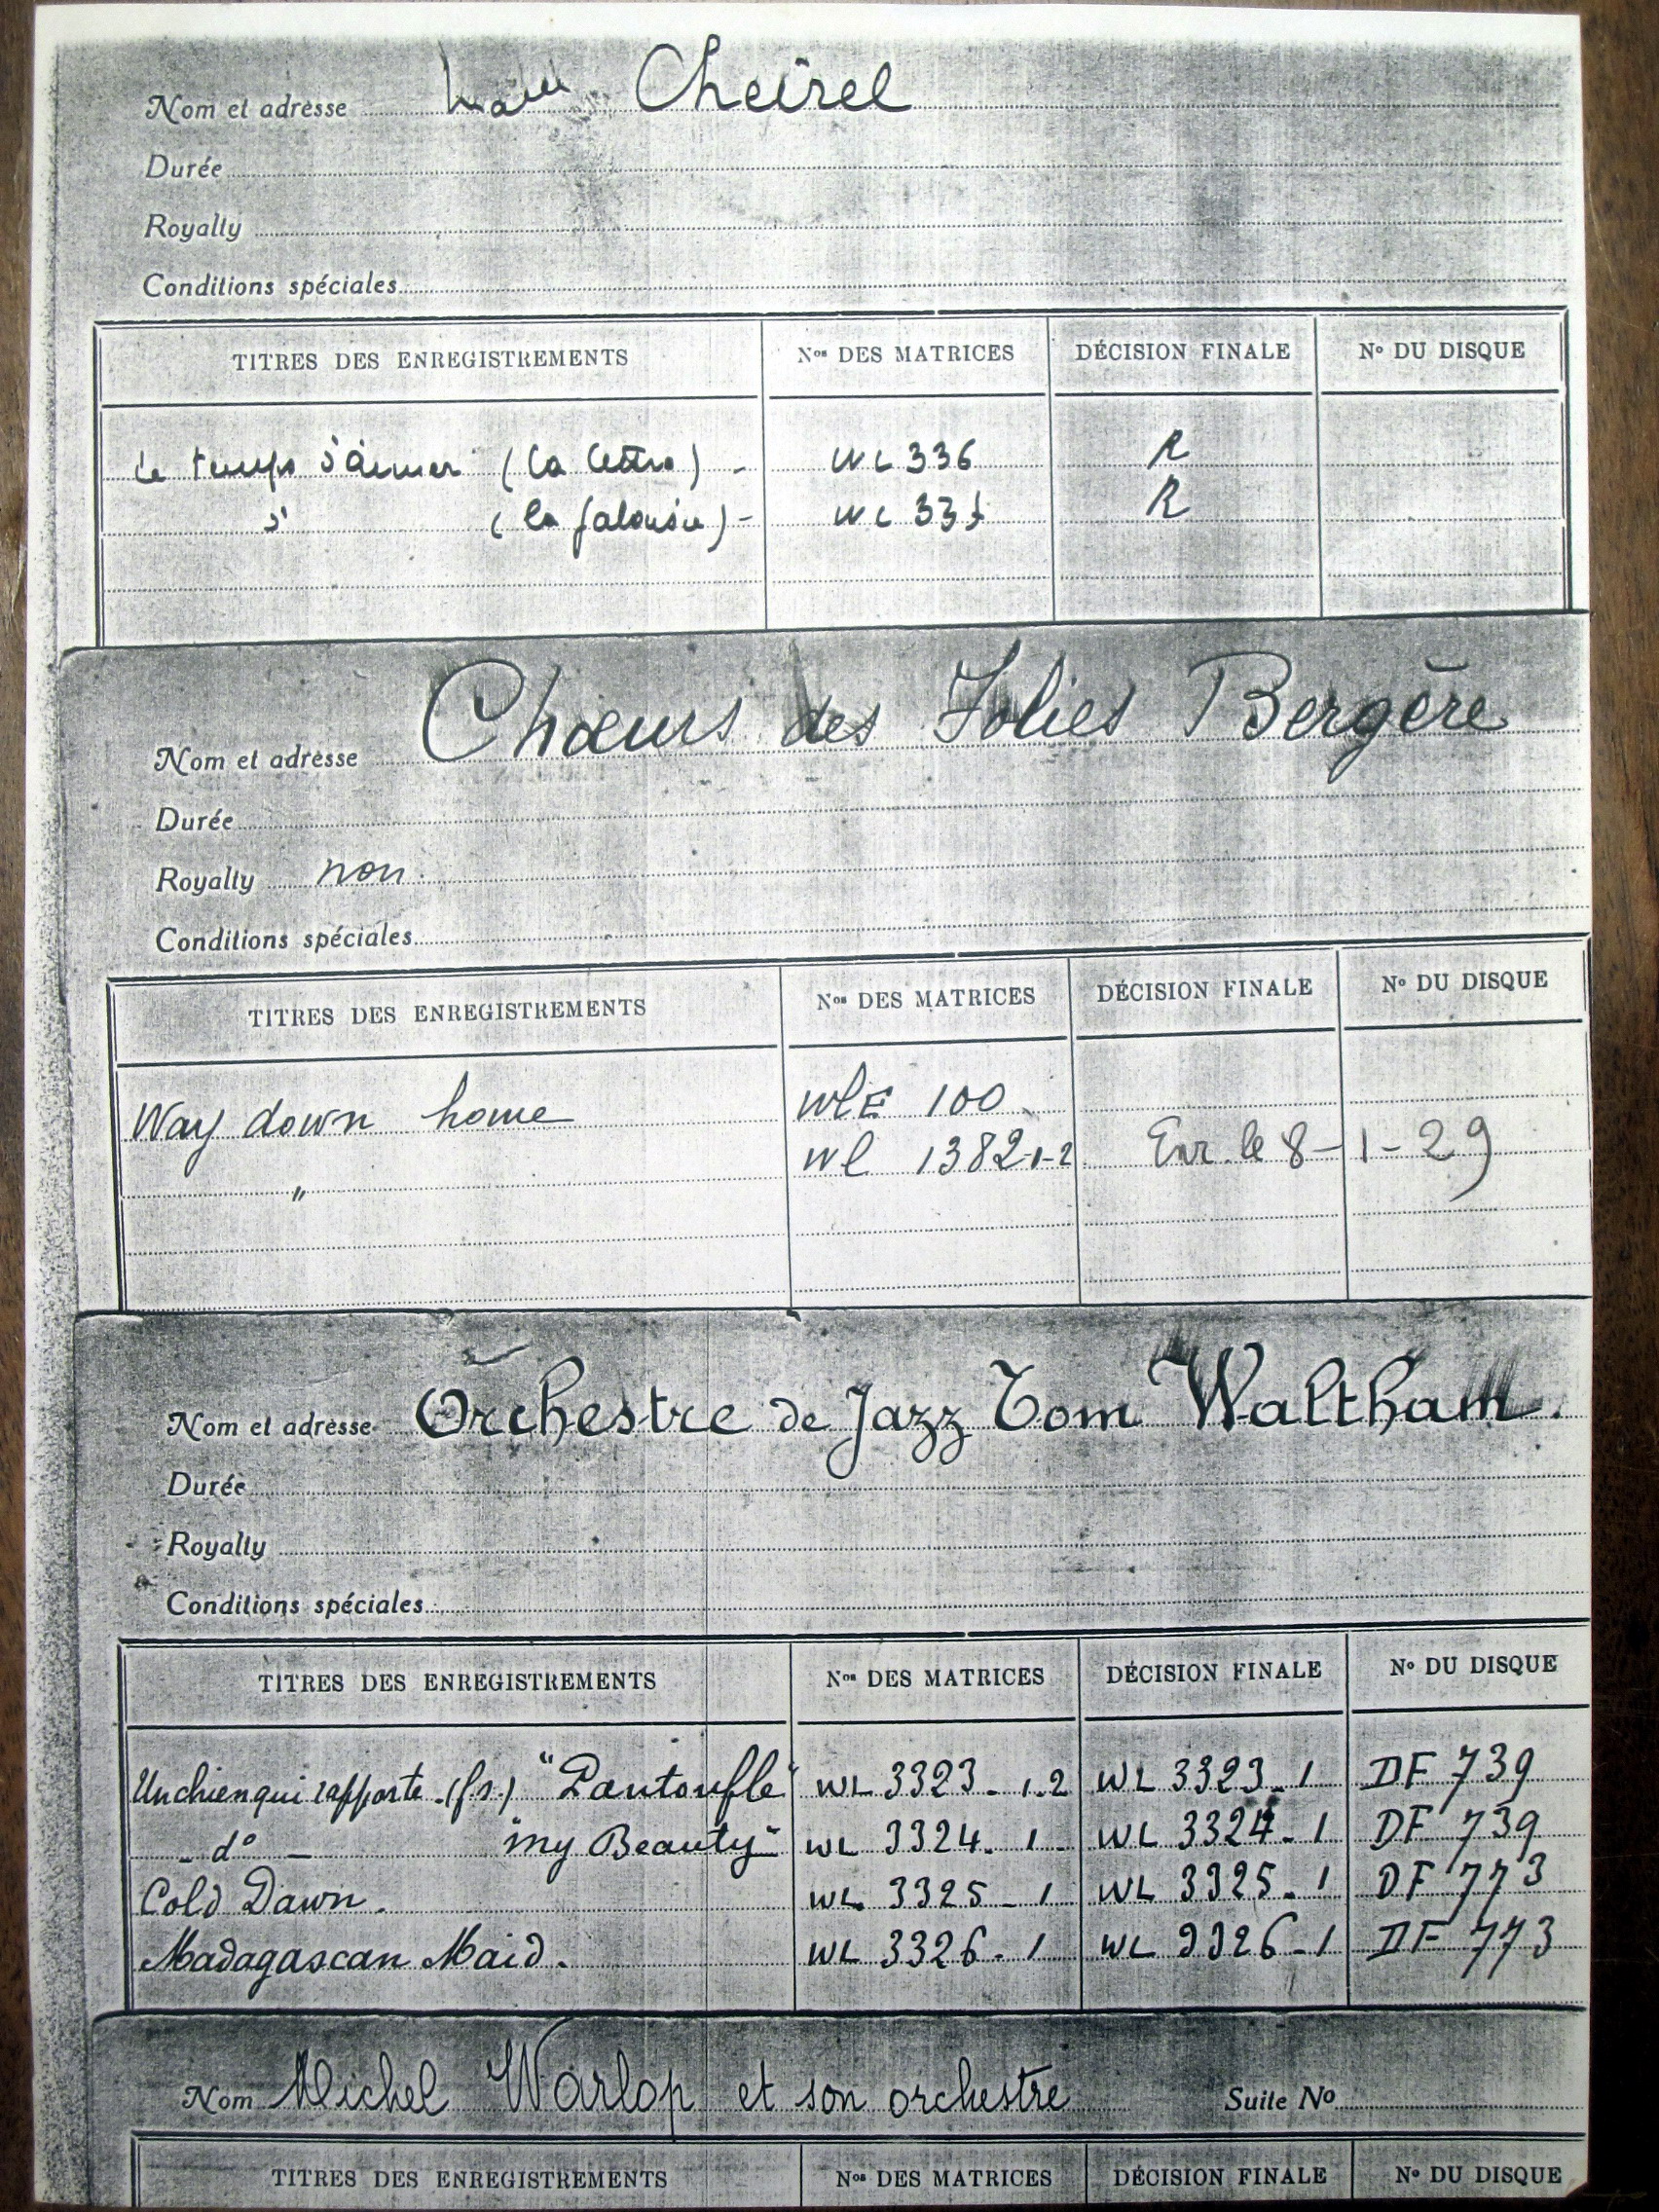 Nom et adresse Cheirel
Durée
Royalty
Conditions spéciales
TITRES DES ENREGISTREMENTS Nos DES MATRICES DÉCISION FINALE No DU DISQUE
Le temps d'aimer (la lettre) - WL 336 R
d° (la jalousie) - WL 337 R
Nom et adresse Chœurs des Folies Bergère
Durée
Royalty non
Conditions spéciales
TITRES DES ENREGISTREMENTS Nos DES MATRICES DÉCISION FINALE No DU DISQUE
Way down home WLE 100
" WL 1382-1-2 Enr. le 8-1-29
Nom et adresse Orchestre de Jazz Tom Waltham.
Durée
Royalty
Conditions spéciales
TITRES DES ENREGISTREMENTS Nos DES MATRICES DÉCISION FINALE No DU DISQUE
Un chien qui rapporte (fs.) "Pantoufle" WL 3323-1.2 WL 3323-1 DF 739
- d° - "my Beauty" WL 3324-1 WL 3324-1 DF 739
Cold Dawn. WL 3325-1 WL 3325-1 DF 773
Madagascan Maid. WL 3326-1 WL 3326-1 DF 773
Nom Michel Warlop et son orchestre Suite No
TITRES DES ENREGISTREMENTS Nos DES MATRICES DÉCISION FINALE No DU DISQUE